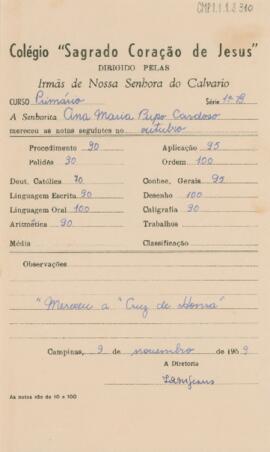 CMP1.1.1.2.310
Colégio "Sagrado Coração de Jesus"
DIRIGIDO PELAS
Irmãs de Nossa Senhora do Calvario
CURSO Primário Série 1ª B
A Senhorita Ana Maria Cardoso
mereceu as notas seguintes no outubro
Procedimento 90 Aplicação 95
Polidês 90 Ordem 100
Dout. Católica 70 Conhec. Gerais 95
Linguagem Escrita 90 Desenho 100
Linguagem Oral 100 Caligrafia 90
Aritmética 90 Trabalhos
Média Classificação
Observações
"Mereceu a "Cruz de Honra"
Campinas, 9 de novembro de 1959
A Diretoria
As notas são de 10 a 100